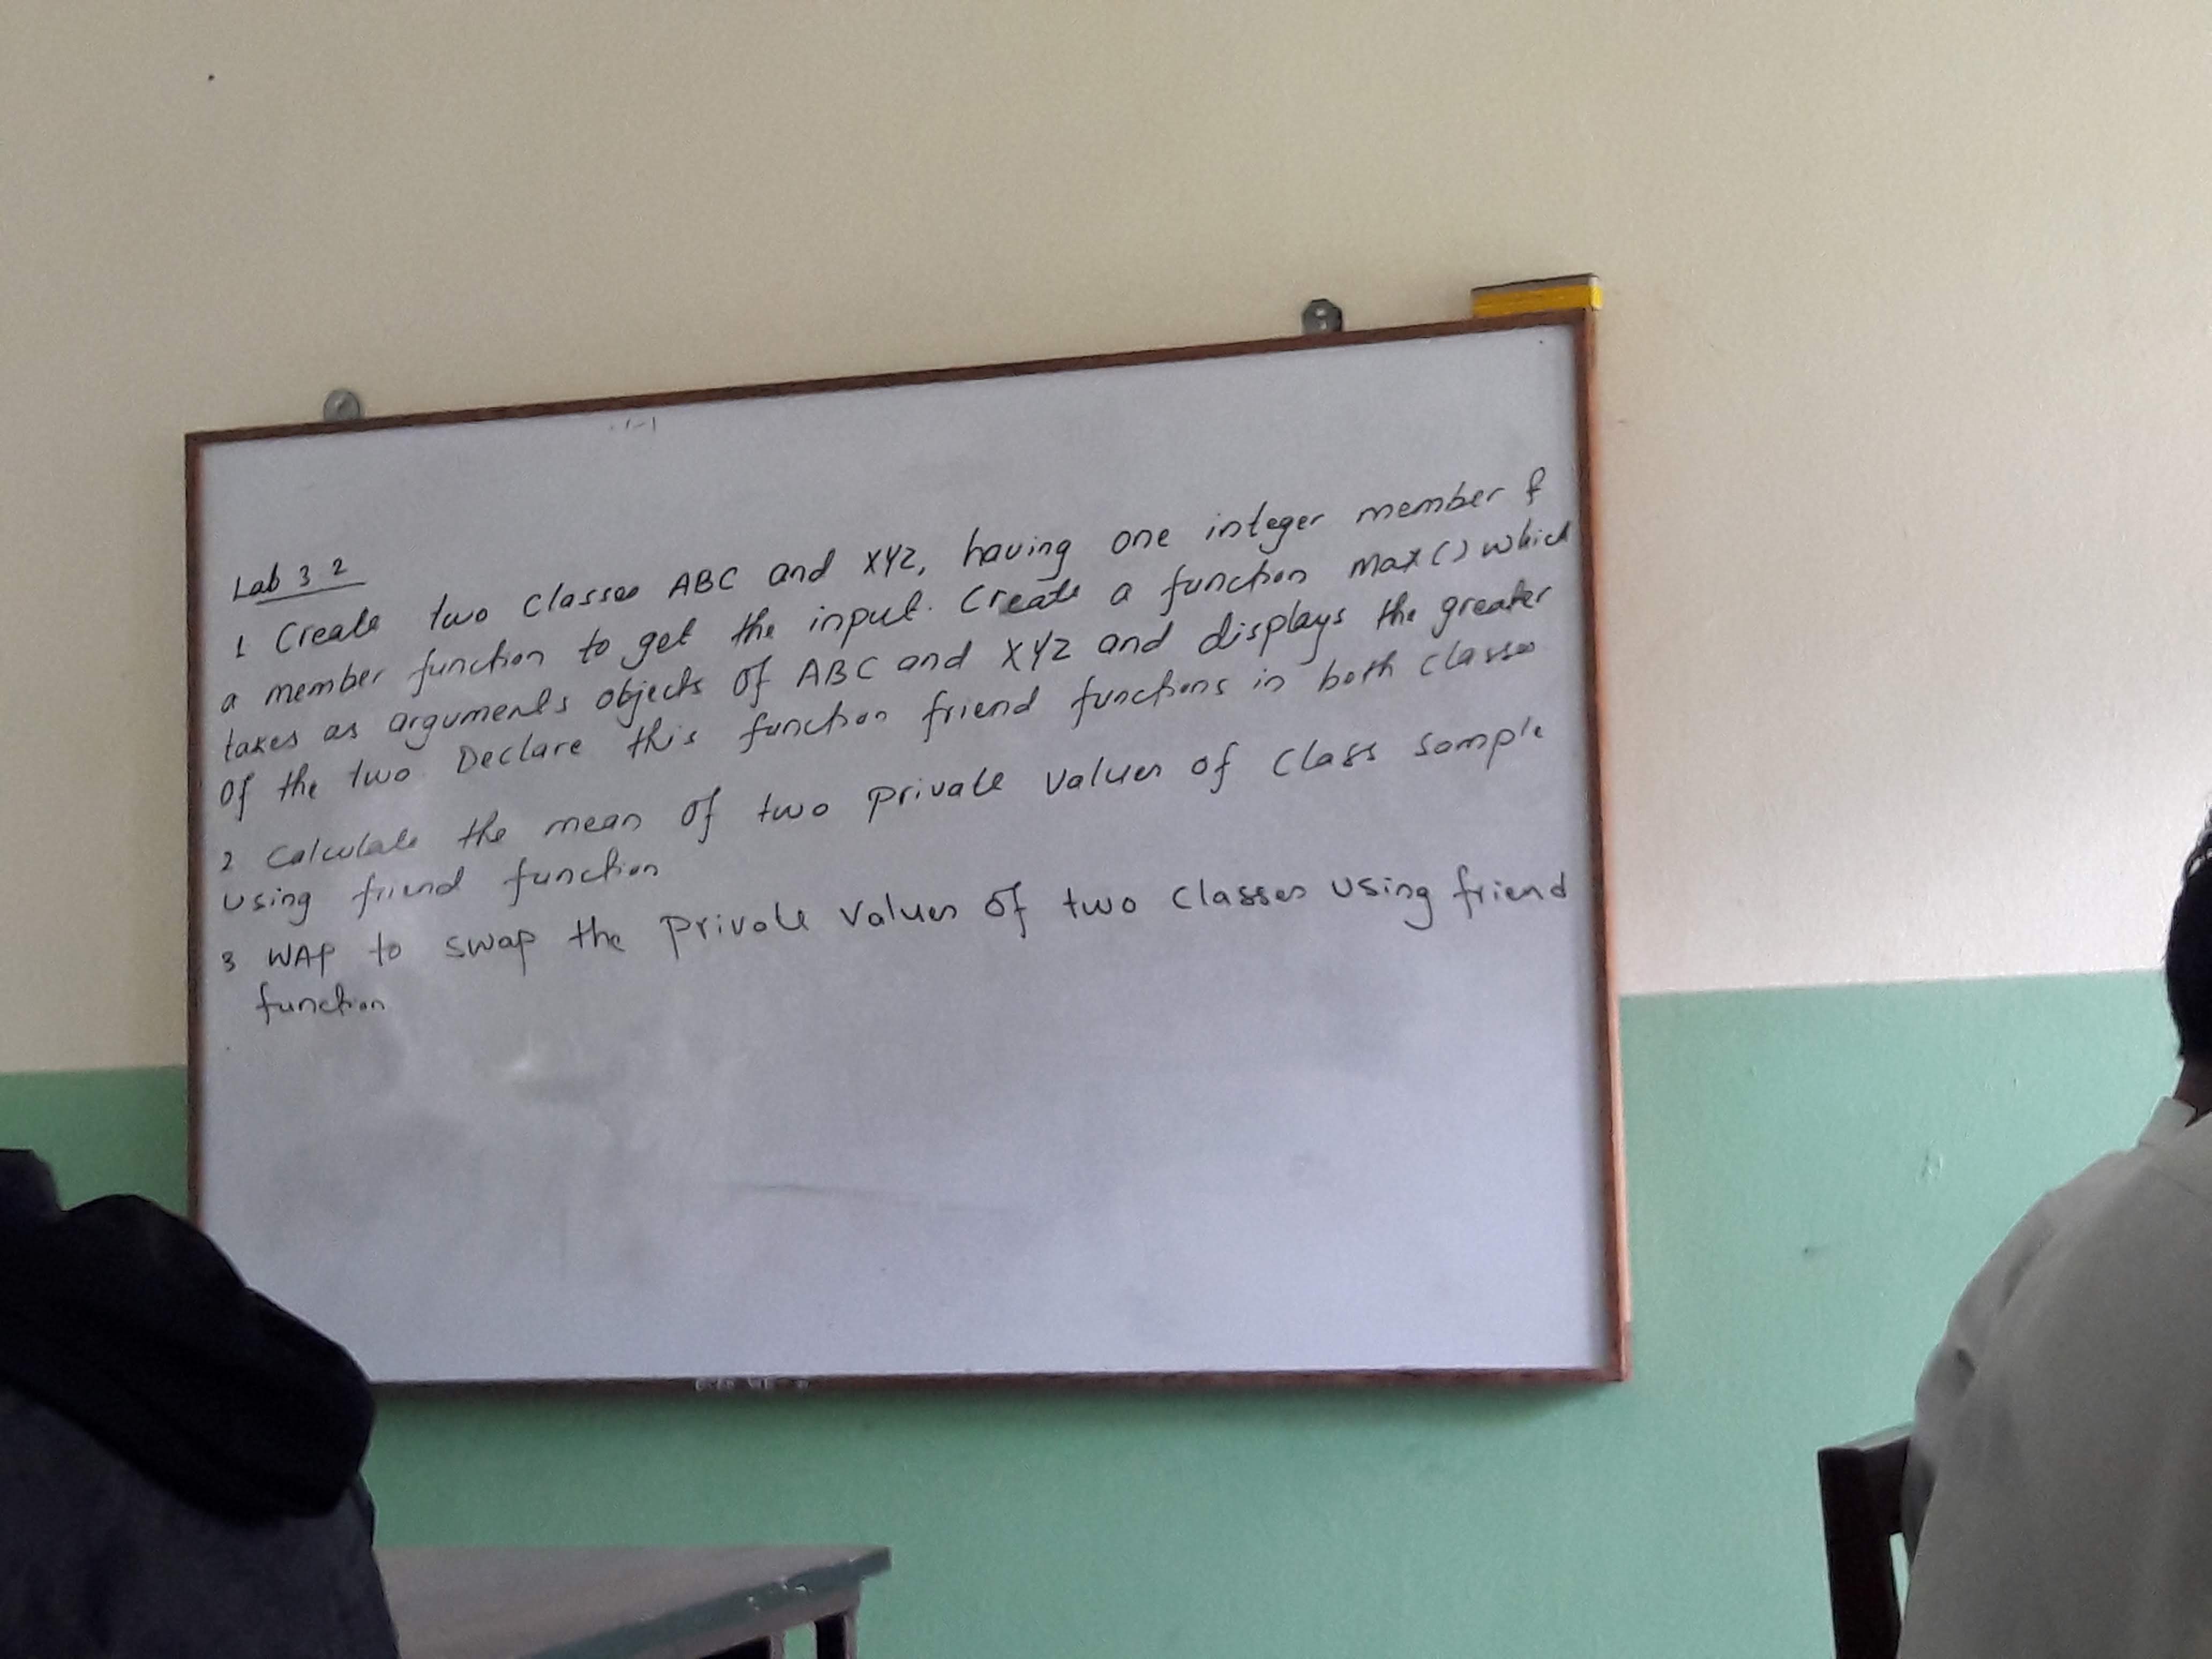 Lab 3 2
1 Create two classes ABC and XYZ, having one integer member &
a member function to get the input. Create a function max() which
takes as arguments objects of ABC and XYZ and displays the greater
of the two. Declare this function friend functions in both classes
2 Calculate the mean of two private values of class sample
using friend function
3 WAP to swap the private values of two classes using friend
function